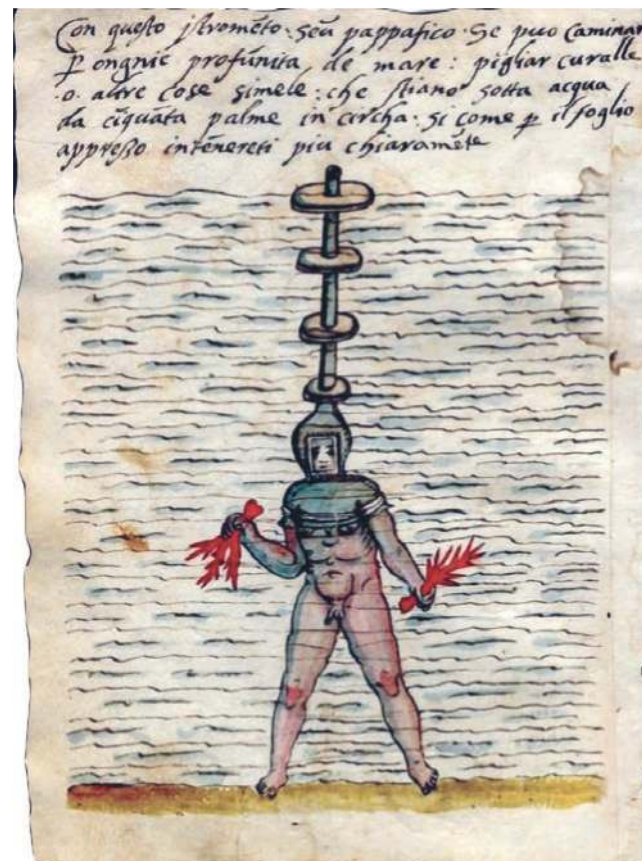 Con questo jstromēto. seu pappafico. Se puo Caminar
P ongnie profūnita de mare: pigliar curalle
.o. altre cose simele: che stiano sotta acqua
da ciquata palme in circha. si come p il foglio
appresso intēnereti piu chiaramēte